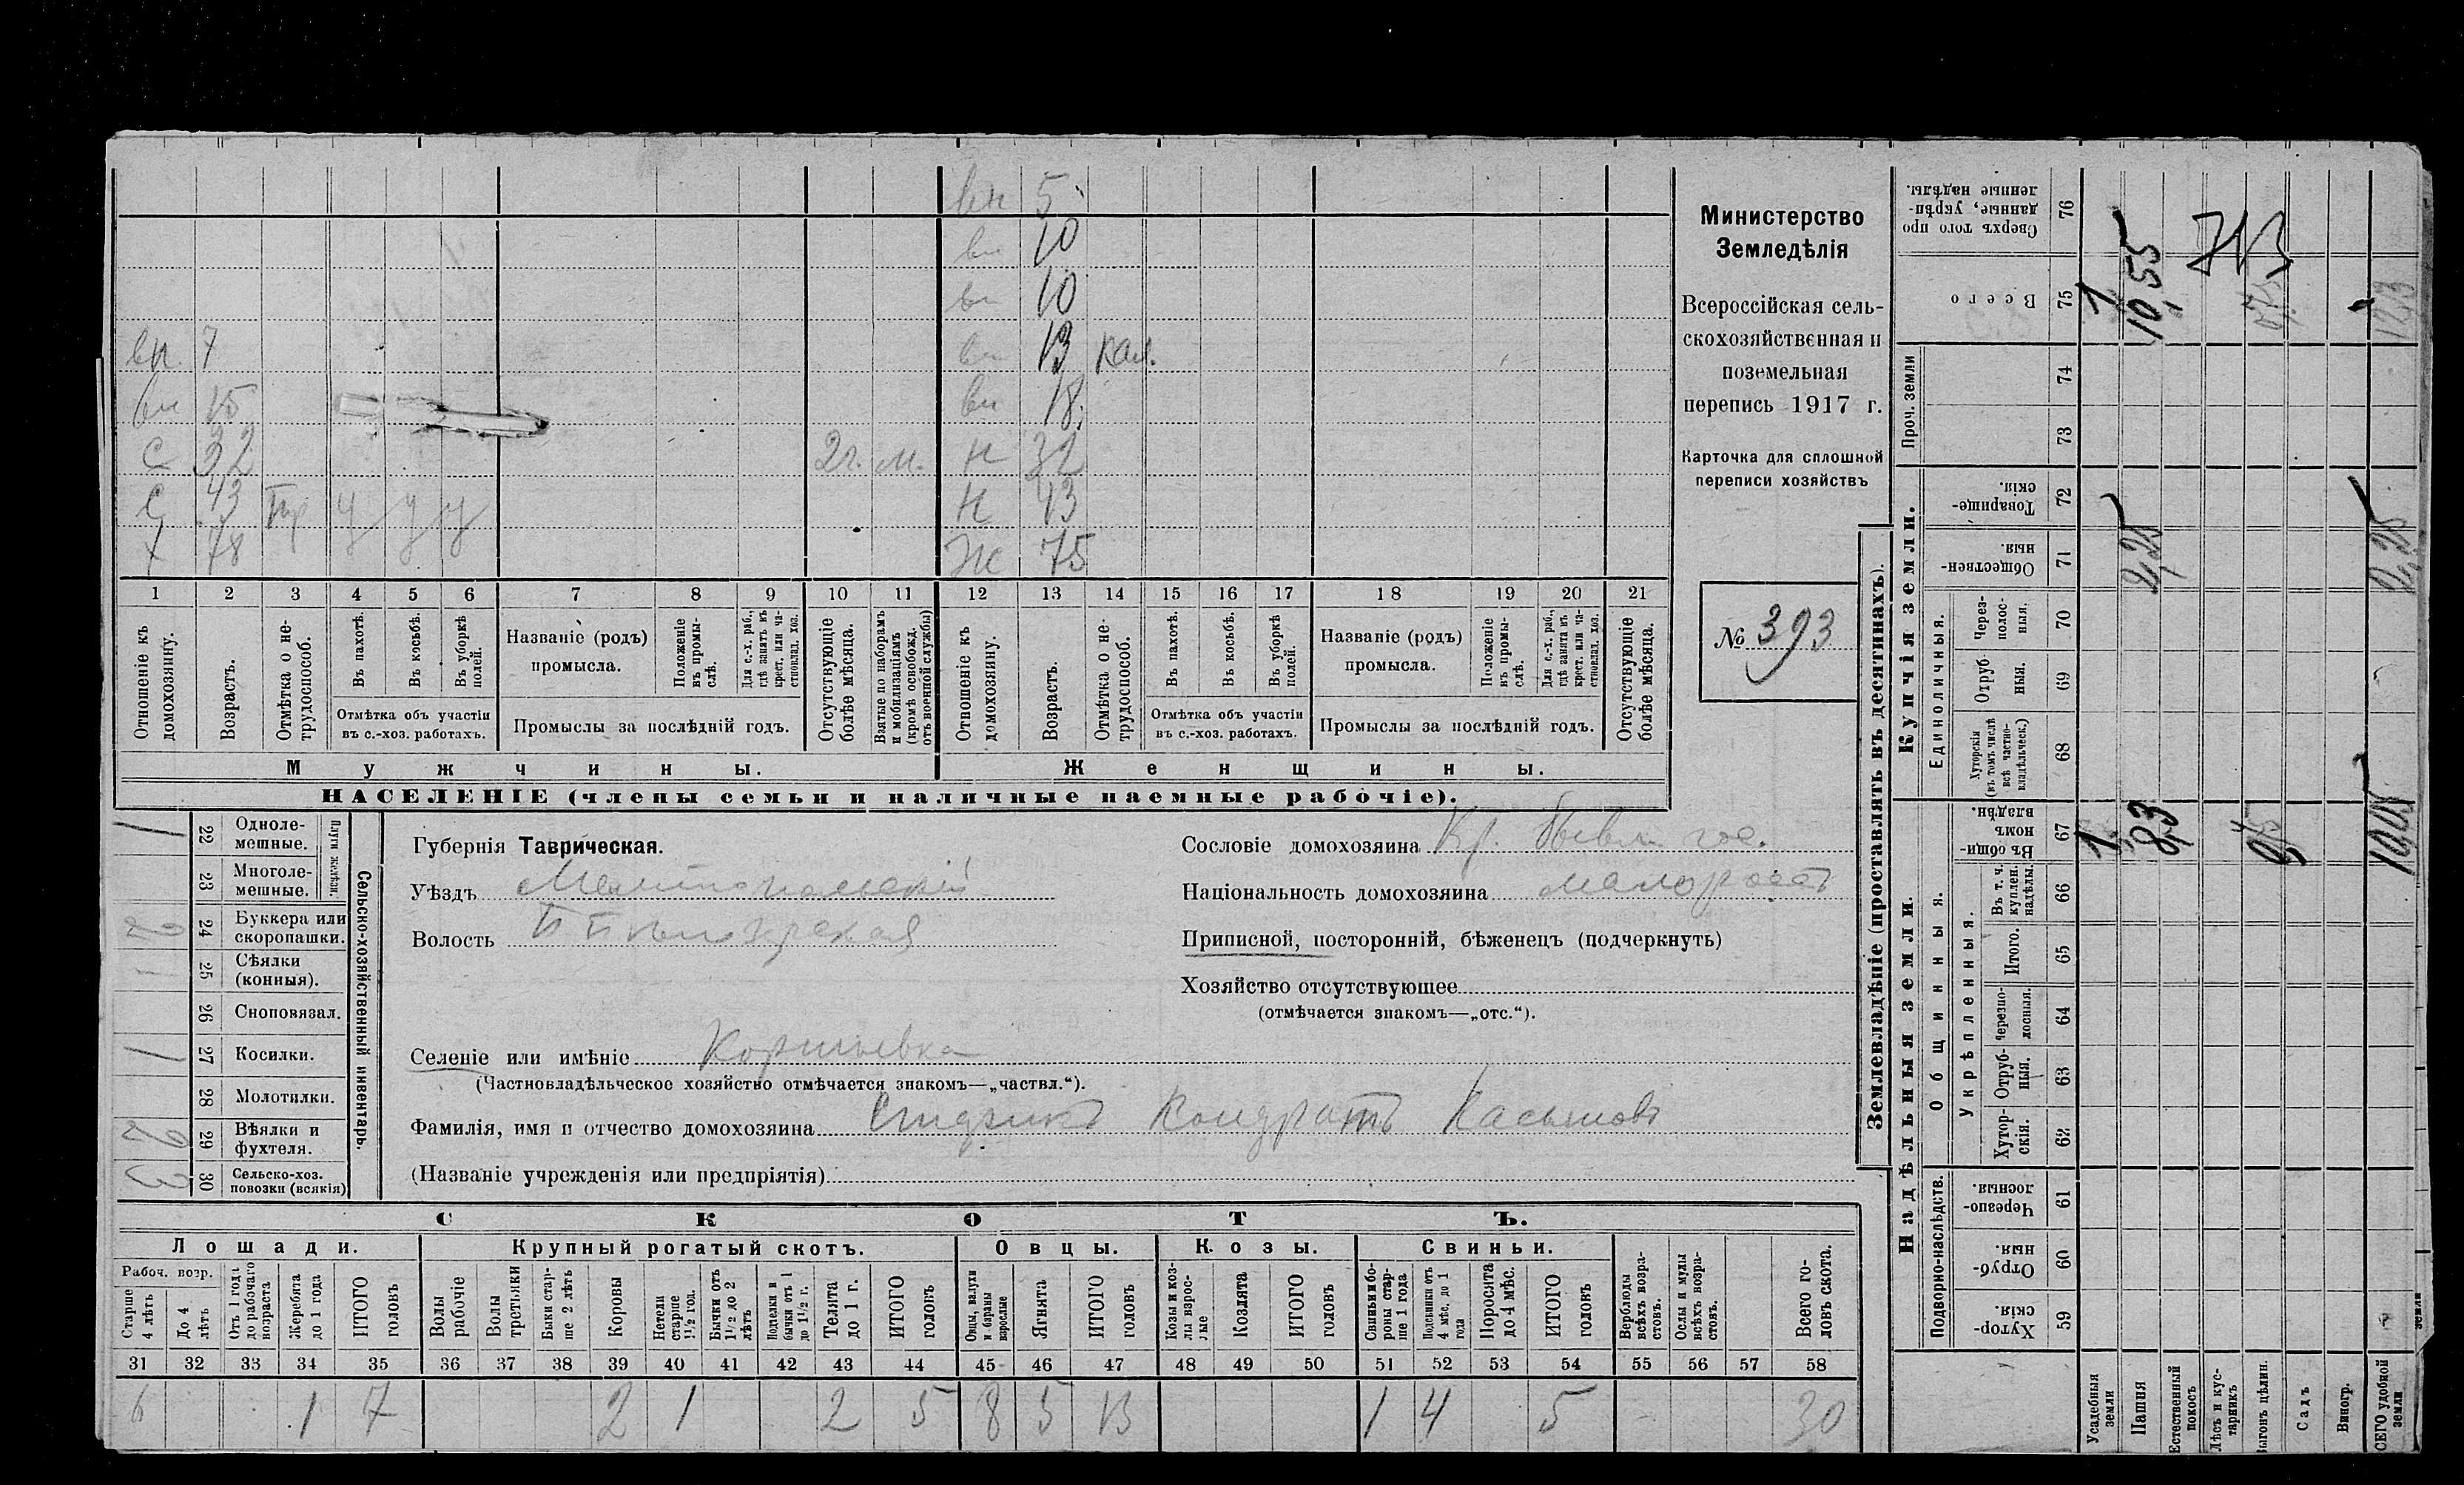 вн 5
вн 10
вн 10
вп. 7 вн 13 кал.
вн 15 вн 18
с 32 2г. м. н 32
с 43 Гр у у у н 43
х 78 Ж 75
1 2 3 4 5 6 7 8 9 10 11 12 13 14 15 16 17 18 19 20 21
Отношеніе къ домохозяину.
Возрастъ.
Отмѣтка о не-трудоспособ.
Въ пахотѣ.
Въ косьбѣ.
Въ уборкѣ полей.
Отмѣтка объ участіи
въ с.-хоз. работахъ.
Названіе (родъ)
промысла.
Положеніе въ промы-слѣ.
Для с.-х. раб., гдѣ занятъ въ крест. или ча-стновлад. хоз.
Промыслы за послѣдній годъ.
Отсутствующіе болѣе мѣсяца.
Взятые по наборамъ и мобилизаціямъ (кромѣ освобожд. отъ военной службы)
Отношеніе къ домохозяину.
Возрастъ.
Отмѣтка о не-трудоспособ.
Въ пахотѣ.
Въ косьбѣ.
Въ уборкѣ полей.
Отмѣтка объ участіи
въ с.-хоз. работахъ.
Названіе (родъ)
промысла.
Положеніе въ промы-слѣ.
Для с.-х. раб., гдѣ занята въ крест. или ча-стновлад. хоз.
Промыслы за послѣдній годъ.
Отсутствующіе болѣе мѣсяца.
Мужчины.
Женщины.
НАСЕЛЕНІЕ (члены семьи и наличные наемные рабочіе).
Министерство
Земледѣлія
Всероссійская сель-
скохозяйственная и
поземельная
перепись 1917 г.
Карточка для сплошной
переписи хозяйствъ
№ 393
Сельско-хозяйственный инвентарь.
Плуги желѣзн.
22 Одноле-мешные. 1
23 Многоле-мешные.
24 Буккера или скоропашки. 2
25 Сѣялки (конныя). 1
26 Сноповязал.
27 Косилки. 1
28 Молотилки.
29 Вѣялки и фухтеля. 2
30 Сельско-хоз. повозки (всякія) 3
Губернія Таврическая.
Уѣздъ Мелитопольскій
Волость
Селеніе или имѣніе
(Частновладѣльческое хозяйство отмѣчается знакомъ—„частвл.“).
Фамилія, имя и отчество домохозяина Кондратъ Касьяновъ
(Названіе учрежденія или предпріятія)
Сословіе домохозяина Кр. бывш. гос.
Національность домохозяина малороссъ
Приписной, посторонній, бѣженецъ (подчеркнуть)
Хозяйство отсутствующее
(отмѣчается знакомъ—„отс.“).
СКОТЪ.
Лошади.
Крупный рогатый скотъ.
Овцы.
Козы.
Свиньи.
Рабоч. возр.
Старше 4 лѣтъ
До 4 лѣтъ
Отъ 1 года до рабочаго возраста
Жеребята до 1 года
ИТОГО головъ
Волы рабочіе
Волы третьяки
Быки стар-ше 2 лѣтъ
Коровы
Нетели старше 1½ год.
Бычки отъ 1½ до 2 лѣтъ
Подтелки и бычки отъ 1 до 1½ г.
Телята до 1 г.
ИТОГО головъ
Овцы, валухи и бараны взрослые
Ягнята
ИТОГО головъ
Козы и коз-лы взрос-лые
Козлята
ИТОГО головъ
Свиньи и бо-ровы стар-ше 1 года
Подсвинки отъ 4 мѣс. до 1 года
Поросята до 4 мѣс.
ИТОГО головъ
Верблюды всѣхъ возра-стовъ.
Ослы и мулы всѣхъ возра-стовъ.
Всего го-ловъ скота.
31 32 33 34 35 36 37 38 39 40 41 42 43 44 45 46 47 48 49 50 51 52 53 54 55 56 57 58
6 1 7 2 1 2 5 8 5 13 1 4 5 30
Землевладѣніе (проставлять въ десятинахъ).
Надѣльныя земли.
Купчія земли.
Проч. земли
Подворно-наслѣдств.
Общинныя.
Укрѣпленныя.
Единоличныя.
Сверхъ того про данные, укрѣп-ленные надѣлы. 76
Всего 75
74
73
Товарище-скія. 72
Обществен-ныя. 71
Через-полос-ныя. 70
Отруб-ныя. 69
Хуторскія (въ томъ числѣ всѣ частно-владѣльческ.) 68
Въ общи-номъ владѣн. 67
Въ т. ч. куплен. надѣлы. 66
Итого. 65
Черезпо-лосныя. 64
Отруб-ныя. 63
Хутор-скія. 62
Черезпо-лосныя. 61
Отруб-ныя. 60
Хутор-скія. 59
Усадебныя земли
Пашня
Естественный покосъ
Лѣсъ и кус-тарникъ
Выгонъ цѣлин.
Садъ
Виногр.
ВСЕГО удобной земли
1 10,55
2,25 2,25
1 8,3